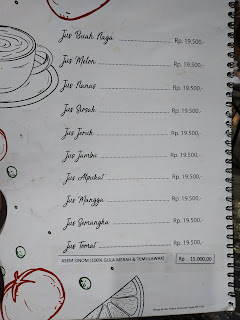 Jus Buah Naga ........ Rp. 19.500,-
Jus Melon ........ Rp. 19.500,-
Jus Nanas ........ Rp. 19.500,-
Jus Sirsak ........ Rp. 19.500,-
Jus Jeruk ........ Rp. 19.500,-
Jus Jambu ........ Rp. 19.500,-
Jus Alpukat ........ Rp. 19.500,-
Jus Mangga ........ Rp. 19.500,-
Jus Semangka ........ Rp. 19.500,-
Jus Tomat ........ Rp. 19.500,-
ASEM SINOM (100% GULA MERAH & TEMULAWAK) Rp 15.000,00